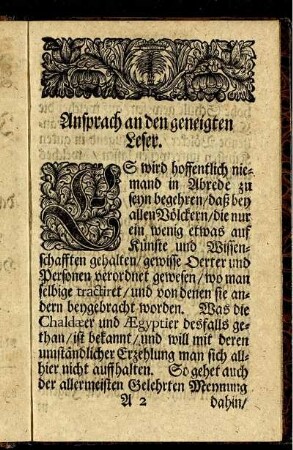 Ansprach an den geneigten
Leser.
ES wird hoffentlich nie-
mand in Abrede zu
seyn begehren/ daß bey
allen Völckern/ die nur
ein wenig etwas auf
Künste und Wissen-
schafften gehalten/ gewisse Oerter und
Personen verordnet gewesen/ wo man
selbige tractiret/ und von denen sie an-
dern beygebracht worden. Was die
Chaldæer und Ægyptier desfalls ge-
than/ ist bekannt/ und will mit deren
umständlicher Erzehlung man sich all-
hier nicht auffhalten. So gehet auch
der allermeisten Gelehrten Meynung
A 2 dahin/